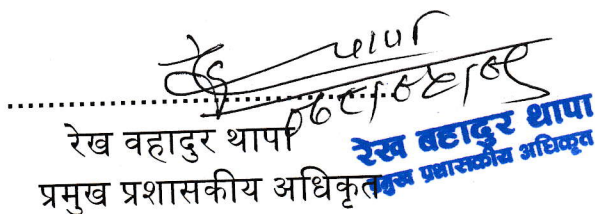 थापा
रेख वहादुर थापा
प्रमुख प्रशासकीय अधिकृत
रेख बहादुर थापा
प्रमुख प्रशासकीय अधिकृत